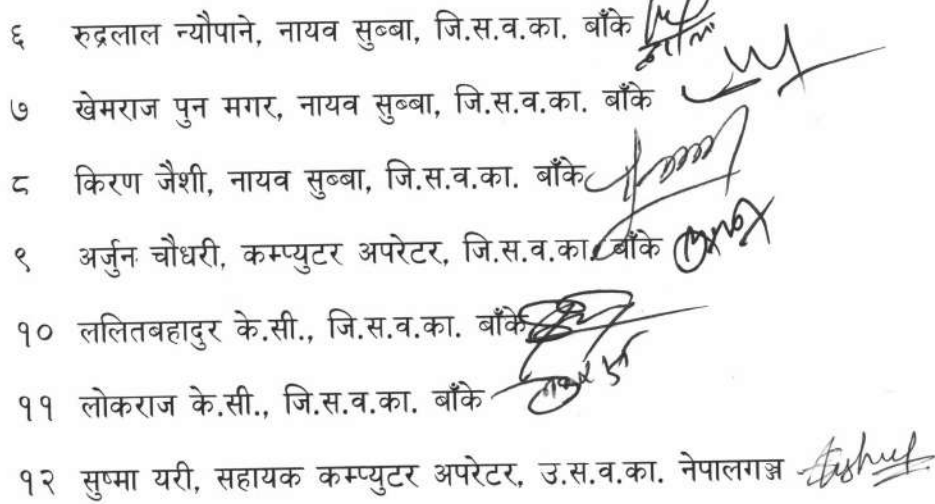 ६ रुद्रलाल न्यौपाने, नायव सुब्बा, जि.स.व.का. बाँके
७ खेमराज पुन मगर, नायव सुब्बा, जि.स.व.का. बाँके
८ किरण जैशी, नायव सुब्बा, जि.स.व.का. बाँके
९ अर्जुन चौधरी, कम्प्युटर अपरेटर, जि.स.व.का. बाँके
१० ललितबहादुर के.सी., जि.स.व.का. बाँके
११ लोकराज के.सी., जि.स.व.का. बाँके
१२ सुष्मा यरी, सहायक कम्प्युटर अपरेटर, उ.स.व.का. नेपालगञ्ज